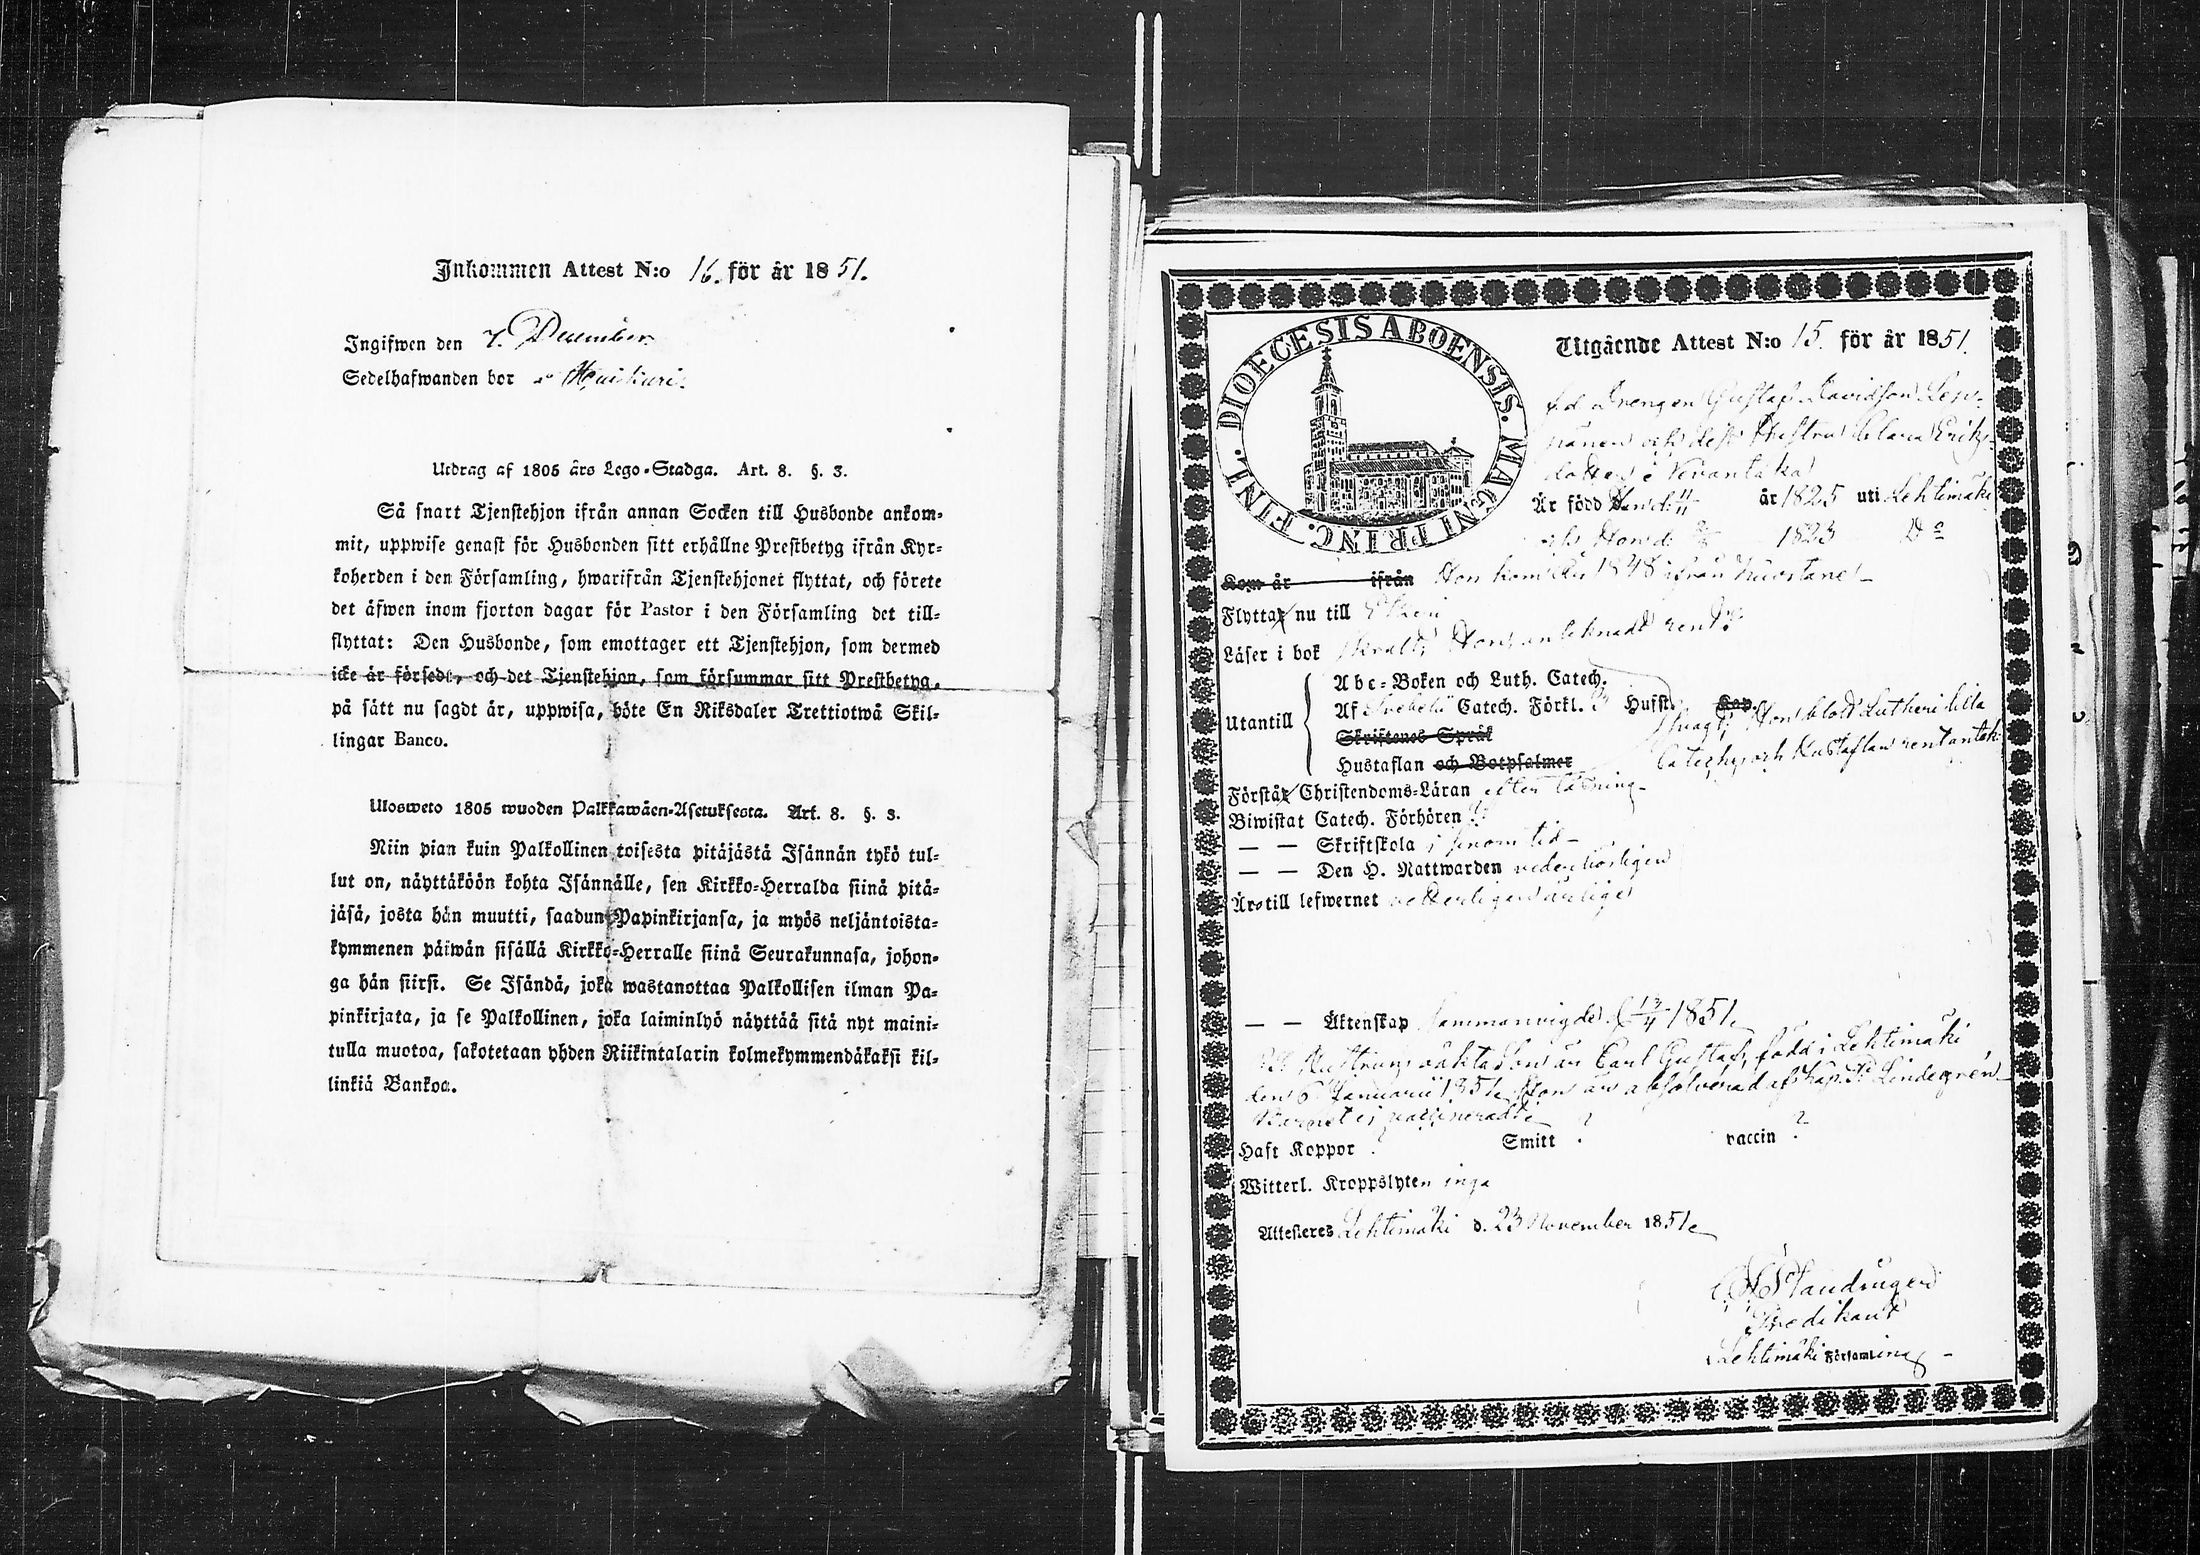 Inkommen Attest N:o 16. för år 1851.
Ingifwen den 7. December.
Sedelhafwanden bor
Utdrag af 1805 års Lego-Stadga. Art. 8. §. 3.
Så snart Tjenstehjon ifrån annan Socken till Husbonde ankom-
mit, uppwise genast för Husbonden sitt erhållne Prestbetyg ifrån Kyr-
koherden i den Församling, hwarifrån Tjenstehjonet flyttat, och förete
det äfwen inom fjorton dagar för Pastor i den Församling det till-
flyttat: Den Husbonde, som emottager ett Tjenstehjon, som dermed
icke är försedt, och det Tjenstehjon, som försummar sitt Prestbetyg,
på sätt nu sagdt är, uppwisa, böte En Riksdaler Trettiotwå Skil-
lingar Banco.
Ulosweto 1805 wuoden Palkkawäen-Asetuksesta. Art. 8. §. 3.
Niin pian kuin Palkollinen toisesta pitäjästä Isännän tykö tul-
lut on, näyttäköön kohta Isännälle, sen Kirkko-Herralda siinä pitä-
jäsä, josta hän muutti, saadun Papinkirjansa, ja myös neljäntoista-
kymmenen päiwän sisällä Kirkko-Herralle siinä Seurakunnasa, johon-
ga hän siirsi. Se Isändä, joka wastanottaa Palkollisen ilman Pa-
pinkirjata, ja se Palkollinen, joka laiminlyö näyttää sitä nyt maini-
tulla muotoa, sakotetaan yhden Riikintalarin kolmekymmendäkaksi kil-
linkiä Bankoa.
DIOECESIS ABOENSIS. MAGNI PRINC. FINL.
Utgående Attest N:o 15. för år 1851.
f.d. Drengen Gustaf Davidson Lep-
pänen och dess Hustru Clara Eriks-
dotter i
Är född Han d. 11/11 år 1825 uti Lehtimäki
och Hon d. 1823 Do
Kom år ifrån Hon kom år 1848 ifrån Kuortane
Flyttar nu till
Läser i bok Hon antecknadt rent
Utantill
Abc-Boken och Luth. Catech.
Af Svebelii Catech. Förkl. 3 Hufst. Kap.
svagt, Hon blott Lutheri lilla
Skriftenes Språk
Hustaflan och Botpsalmer
Catechs och Hustaflan rent anteck.
Förstår Christendoms-Läran efter läsning
Biwistat Catech. Förhören ?
— — Skriftskola i sinom tid
— — Den H. Nattwarden vederbörligen
Äro till lefwernet vetterligen ärlige
— — Äktenskap Sammanvigde d. 13/4 1851.
Hustruns oäkta Son är Carl Gustaf, född i Lehtimäki
den 6 Januarii 1851. Hon är absolverad af Kap. Lindegrén
Barnet ej vaccineradt.
Haft Koppor ? Smitt ? vaccin ?
Witterl. Kroppslyten inga
Attesteres Lehtimäki d. 23 November 1851.
Predikant
Lehtimäki Församling